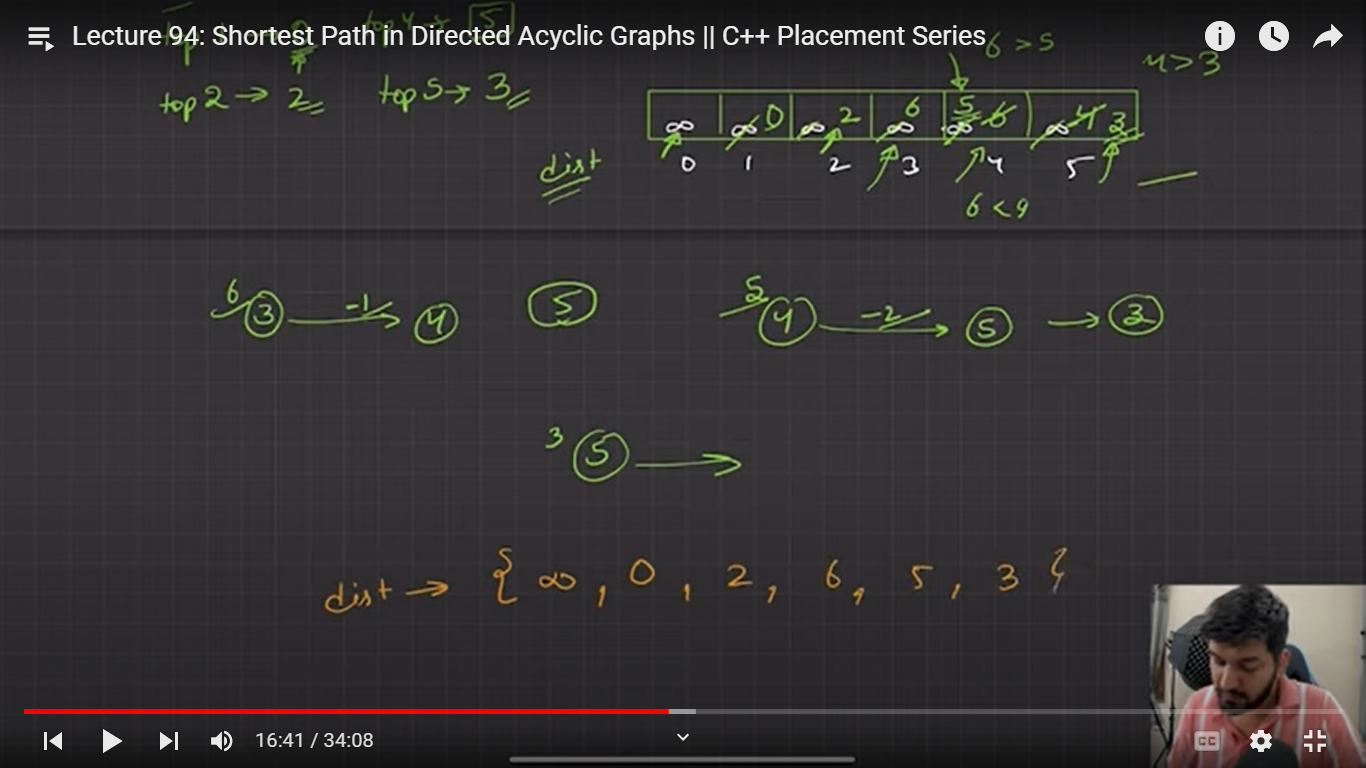 Lecture 94: Shortest Path in Directed Acyclic Graphs || C++ Placement Series
5
6 > 5
4 > 3
top 2 → 2
top 5 → 3
∞ ∞ 0 ∞ 2 ∞ 6 ∞ 5 6 ∞ 4 3
dist
0 1 2 3 4 5
6 < 9
6 3 -1 → 4 5 5 4 -2 → 5 → 3
3 5 →
dist → { ∞ , 0 , 2 , 6 , 5 , 3 }
16:41 / 34:08
CC